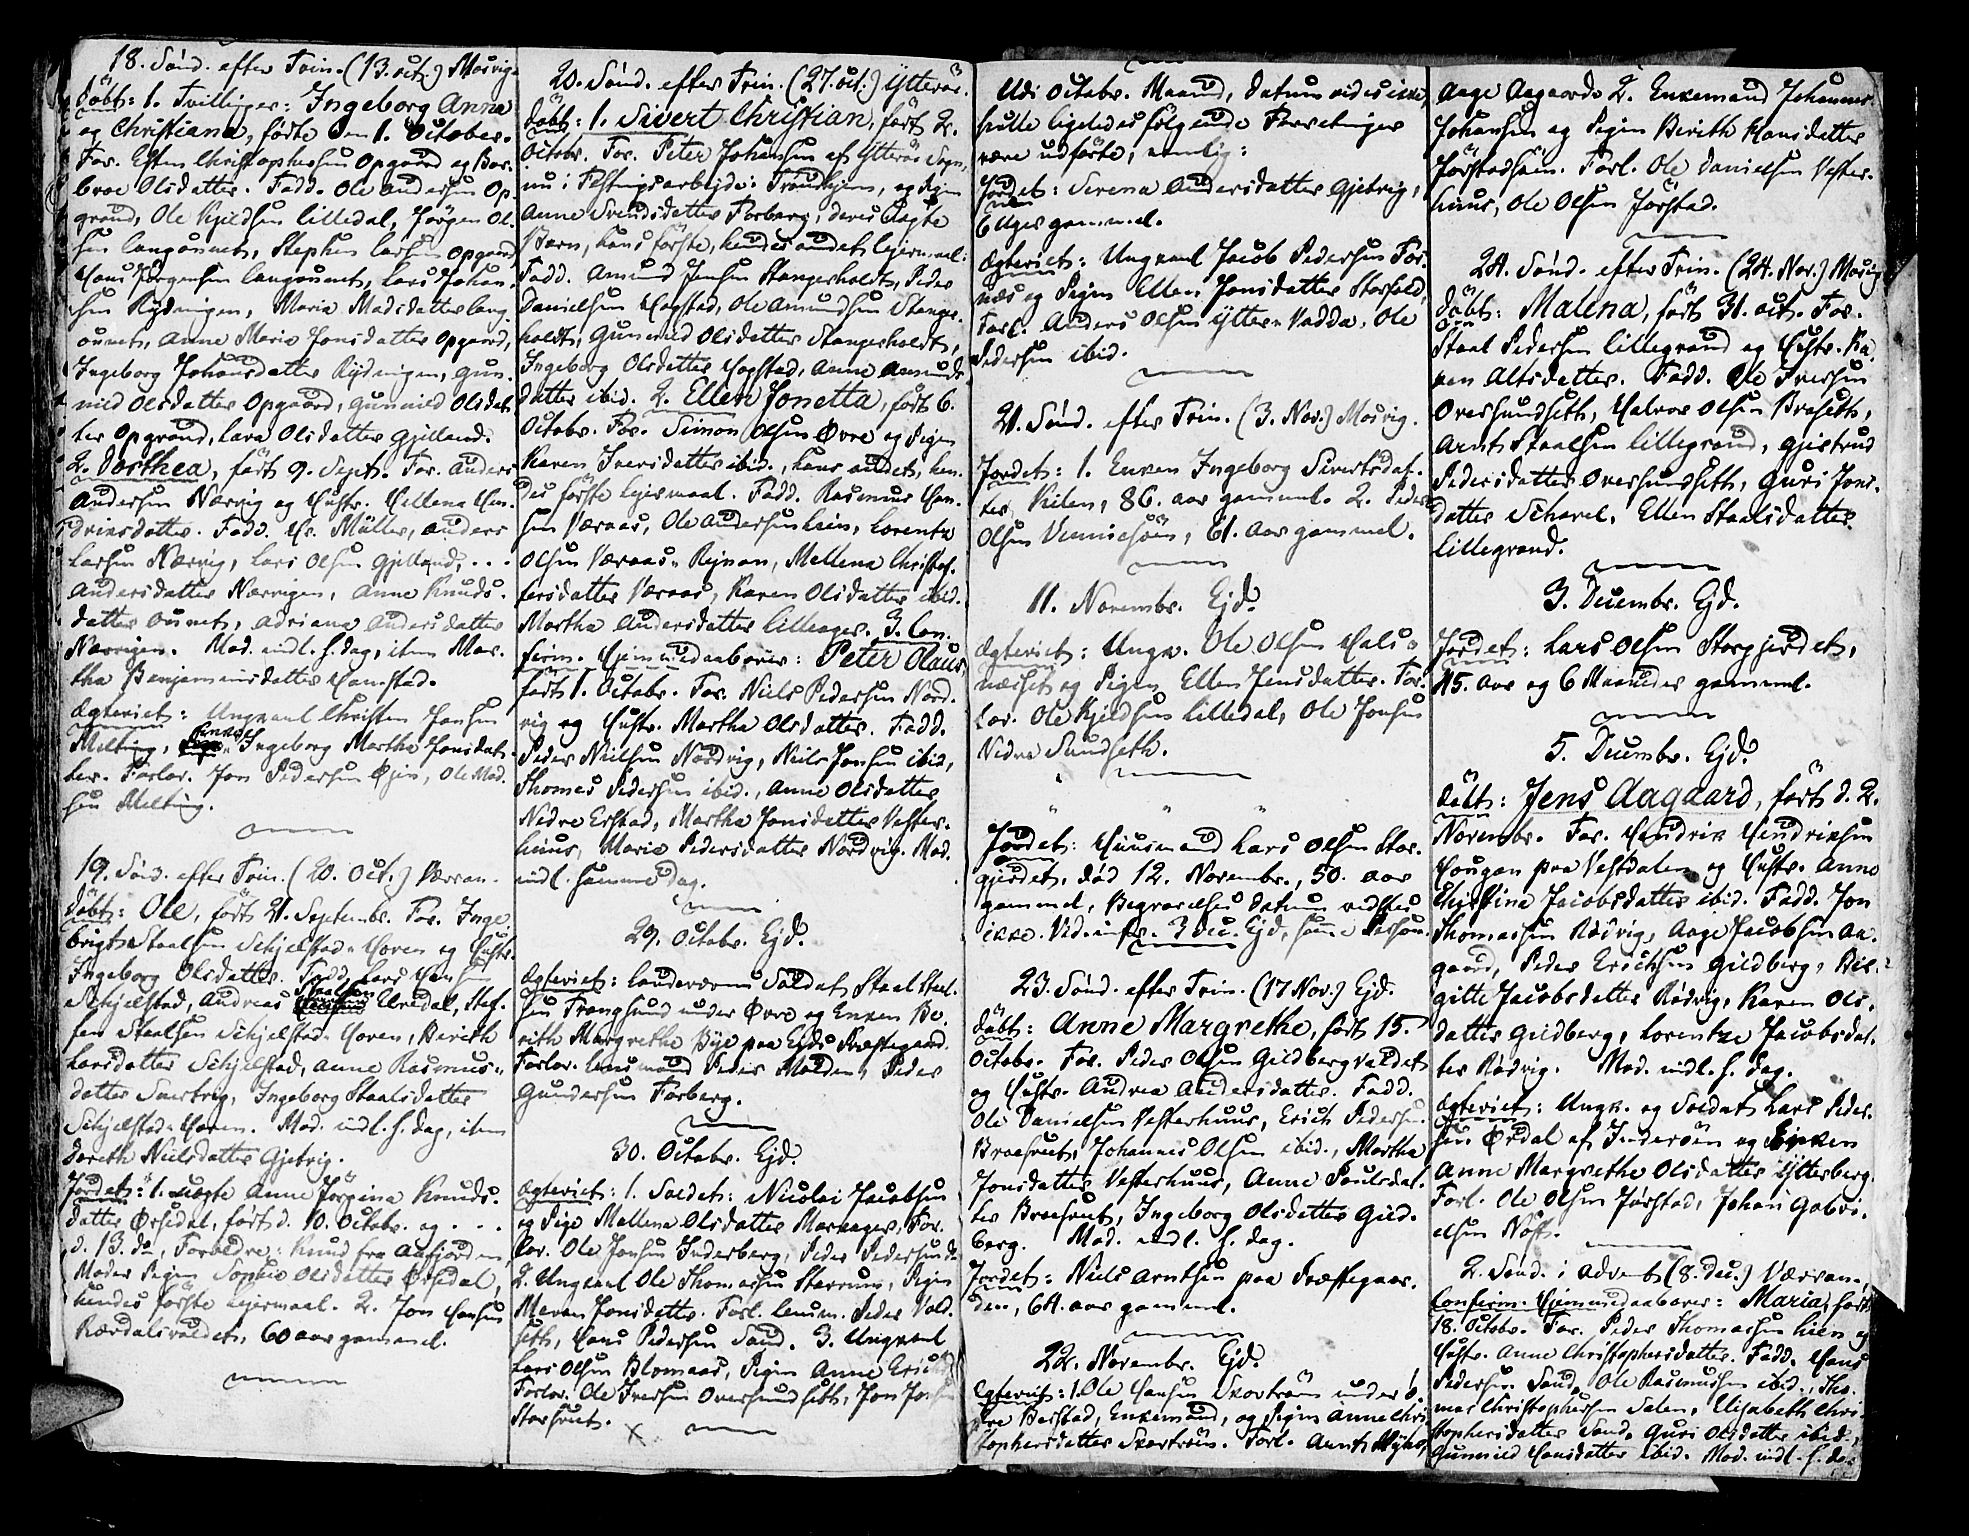 18. Sønd. efter Trin. (13. oct.) Mosvig.
døbt: 1. Tvillinger: Ingeborg Anna
og Christiana, fødte den 1. October.
For. Esten Christophersen Opgrand og Bar-
broe Olsdatter. Fadd. Ole Andersen Op-
grand, Ole Kjeldsen Lilledal, Jørgen Ol-
sen Langøunet, Stephen Larsen Opgrand,
Hans Jørgensen Langøunet, Lars Johan-
sen Rydningen, Maria Madsdatter Lang-
øunet, Anne Maria Jonsdatter Opgrand,
Ingeborg Johansdatter Rydningen, Gun-
nild Olsdatter Opgaard, Gunnild Olsdat-
ter Opgrand, Lara Olsdatter Gjelland.
2. Dorthea, født 9. Sept. For. Anders
Andersen Nærvig og Hustr. Hellena Hen-
drixsdatter. Fadd. Hr. Müller, Anders
Larsen Nærvig, Lars Olsen Gjelland, ...
Andersdatter Nærvigen, Anne Knuds-
datter Øunet, Adriana Andersdatter
Nærvigen. Mod. indl. s. dag, item Mar-
tha Benjaminsdatter Hamstad.
Ægteviet: Ungkarl Christen Jonsen
Melting, Ingeborg Martha Jonsdat-
ter. Forlov. Jon Pedersen Øjen, Ole Mad-
sen Melting.
19. Sønd. efter Trin. (20. Oct.) Værran.
døbt: Ole, født 21. Septembr. For. Inge-
brigt Staalsen Schjelstad-Hoven og Hustr.
Ingeborg Olsdatter. Fadd. Lars Hansen
Schjelstad, Andreas Staalsen Elvedal, Stef-
fen Staalsen Schjelstad-Hoven, Berith
Larsdatter Schjelstad, Anne Rasmus-
datter Saxtvig, Ingeborg Staalsdatter
Schjelstad-Hoven. Mod. indl. s. dag, item
Dorith Nielsdatter Gjetvig.
Jordet: 1. uægte Anne Jørgina Knuds-
datter Ørsedal, født d. 10. Octobr. og ...
d. 13. do, Forældre: Knud fra Aafjorden,
Moder Pigen Sophie Olsdatter Ørsedal,
hendes første Lejermaal. 2. Jon Hansen
Rærdalsvaldet, 60 aar gammel.
20. Sønd. efter Trin. (27. oct.) Ytterø.
døbt: 1. Sivert Christian, født 2.
Octobr. For. Peter Johansen af Ytterøe Sogn,
nu i Festningsarbejde i Trondhjem, og Pigen
Anne Svendsdatter Forberg, deres uægte
Barn, hans første, hendes andet Lejermaal.
Fadd. Amund Jensen Stangerholdt, Peder
Danielsen Hogstad, Ole Amundsen Stanger-
holdt, Gunnild Olsdatter Stangerholdt,
Ingeborg Olsdatter Hogstad, Anne Amunds-
datter ibid. 2. Ellen Jonetta, født 6.
Octobr. For. Simon Olsen Øvre og Pigen
Karen Iversdatter ibid., hans andet, hen-
des første Lejermaal. Fadd. Rasmus Han-
sen Væraas, Ole Andersen Lein, Lorentz
Olsen Væraas-Rejnan, Mellena Christof-
fersdatter Væraas, Karen Olsdatter ibid.
Martha Andersdatter Lilleager. 3. Con-
firm. Hjemmedaaben: Peter Olaus,
født 1. Octobr. For. Niels Pedersen Nord-
vig og Hustr. Martha Olsdatter. Fadd.
Peder Nielsen Nordvig, Niels Jonsen ibid,
Thomas Pedersen ibid., Anne Olsdatter
Nedre Erstad, Martha Jonsdatter Vester-
huus, Marie Pedersdatter Nordvig. Mod.
indl. samme dag.
29. Octobr. Ejd.
Ægteviet: Landeværns Soldat Staal Staal-
sen Trongsund under Øvre og Enken Be-
rith Margrethe Bye paa Eids Præstegaard.
Forlov. Lensmand Peder Molden, Peder
Gundersen Forberg.
30. Octobr. Ejd.
Ægteviet: 1. Soldat: Nicolai Jacobsen
og Pige Mallena Olsdatter Maraager, For-
lov. Ole Jonsen Inderberg, Peder Pedersen do.
2. Ungkarl Ole Thomassen Starrun, Pigen
Maren Jonsdatter. Forl. Lensm. Peder Vold-
seth, Hans Pedersen Sand. 3. Ungkarl
Lars Olsen Blomaas, Pigen Anne Erichsd.
Forlov. Ole Iversen Oversundseth, Jon Jonsen
Storsvet.
Udi Octobr. Maaned, datum vides ikke,
skulle ligeledes følgende Forretninger
være udførte, nemlig:
Jordet: Serena Andersdatter Gjetvig,
6 Uger gammel.
Ægteviet: Ungkarl Jacob Pedersen For-
næs og Pigen Ellen Jonsdatter Storfold,
Forl. Anders Olsen Ytter-Vadda, Ole
Pedersen ibid.
21. Sønd. efter Trin. (3. Nov.) Mosvig.
Jordet: 1. Enken Ingeborg Sivertsdat-
ter Kilen, 86. aar gammel. 2. Peder
Olsen Venniesøen, 61. Aar gammel.
11. Novembr. Ejd.
Ægteviet: Ungk. Ole Olsen Hals-
næsset og Pigen Ellen Jensdatter. For-
lov. Ole Kjeldsen Lilledal, Ole Jonsen
Nedre Sundseth.
Jordet: Huusmand Lars Olsen Stor-
gjerdet, død 12. Novembr., 50. aar
gammel, Begravelses datum vidstes
ikke. Vid. infr. 3 Dec. Ejd, samme Person.
23. Sønd. efter Trin. (17 Nov.) Ejd.
døbt: Anne Margrethe, født 15.
Octobr. For. Peder Olsen Gildbergvaldet
og Hustr. Andrea Andersdatter. Fadd.
Ole Danielsen Vesterhuus, Erich Pedersen
Braesvet, Johannes Olsen ibid., Martha
Jonsdatter Vesterhuus, Anne Poulsdat-
ter Braesvet, Ingeborg Olsdatter Gild-
berg. Mod. indl. s. dag.
Jordet: Niels Arntsen paa Præstegaar-
den, 64. aar gammel.
22. Novembr. Ejd.
Ægteviet: 1. Ole Hansen Skovtrøen under ø-
vre Barstad, Enkemand, og Pigen Anne Chri-
stophersdatter Skovtrøen. Forl. Arnt Myhr,
Aage Aagaard. 2. Enkemand Johannes
Johansen og Pigen Berith Hansdatter
Jørstadsøen. Forl. Ole Danielsen Vester-
huus, Ole Olsen Jørstad.
24. Sønd. efter Trin. (24. Nov.) Mosvig.
døbt: Malena, født 31. oct. For.
Staal Pedersen Lillegrand og Hustr. Ka-
ren Altsdatter. Fadd. Ole Iversen
Oversundseth, Halvor Olsen Braseth,
Arnt Staalsen Lillegrand, Gjertrud
Pedersdatter Oversundseth, Guri Jons-
datter Schavel, Ellen Staalsdatter
Lillegrand.
3. Decembr. Ejd.
Jordet: Lars Olsen Storgjerdet,
45. Aar og 6 Maaneder gammel.
5. Decembr. Ejd.
døbt: Jens Aagaard, født d. 2.
Novembr. For. Hendrik Hendriksen
Hougan paa Vestdalen og Hustr. Anne
Christina Jacobsdatter ibid. Fadd. Jon
Thomassen Rødvig, Aage Jacobsen Aa-
gaard, Peder Erichsen Gildberg, Bir-
gitte Jacobsdatter Rødvig, Karen Ols-
datter Gildberg, Lorentze Jacobsdat-
ter Rødvig. Mod. indl. s. dag.
Ægteviet: Ungk. og Soldat Lars Peder-
sen Ørdal af Inderøen og Enken
Anne Margrethe Olsdatter Ytterberg.
Forl. Ole Olsen Jørstad, Johan Gabri-
elsen Nøst.
2. Sønd. i Advent (8. Dec.) Værran.
Confirm. Hjemmedaaben: Maria, født
18. Octobr. For. Peder Thomassen Lien og
Hustr. Anne Christophersdatter. Fadd. Hans
Pedersen Sand, Ole Rasmussen ibid., Tho-
mas Christophersen Salen, Elisabeth Chri-
stophersdatter Sand, Guri Olsdatter ibid.,
Gunnild Hansdatter ibid. Mod. indl. s. dag.